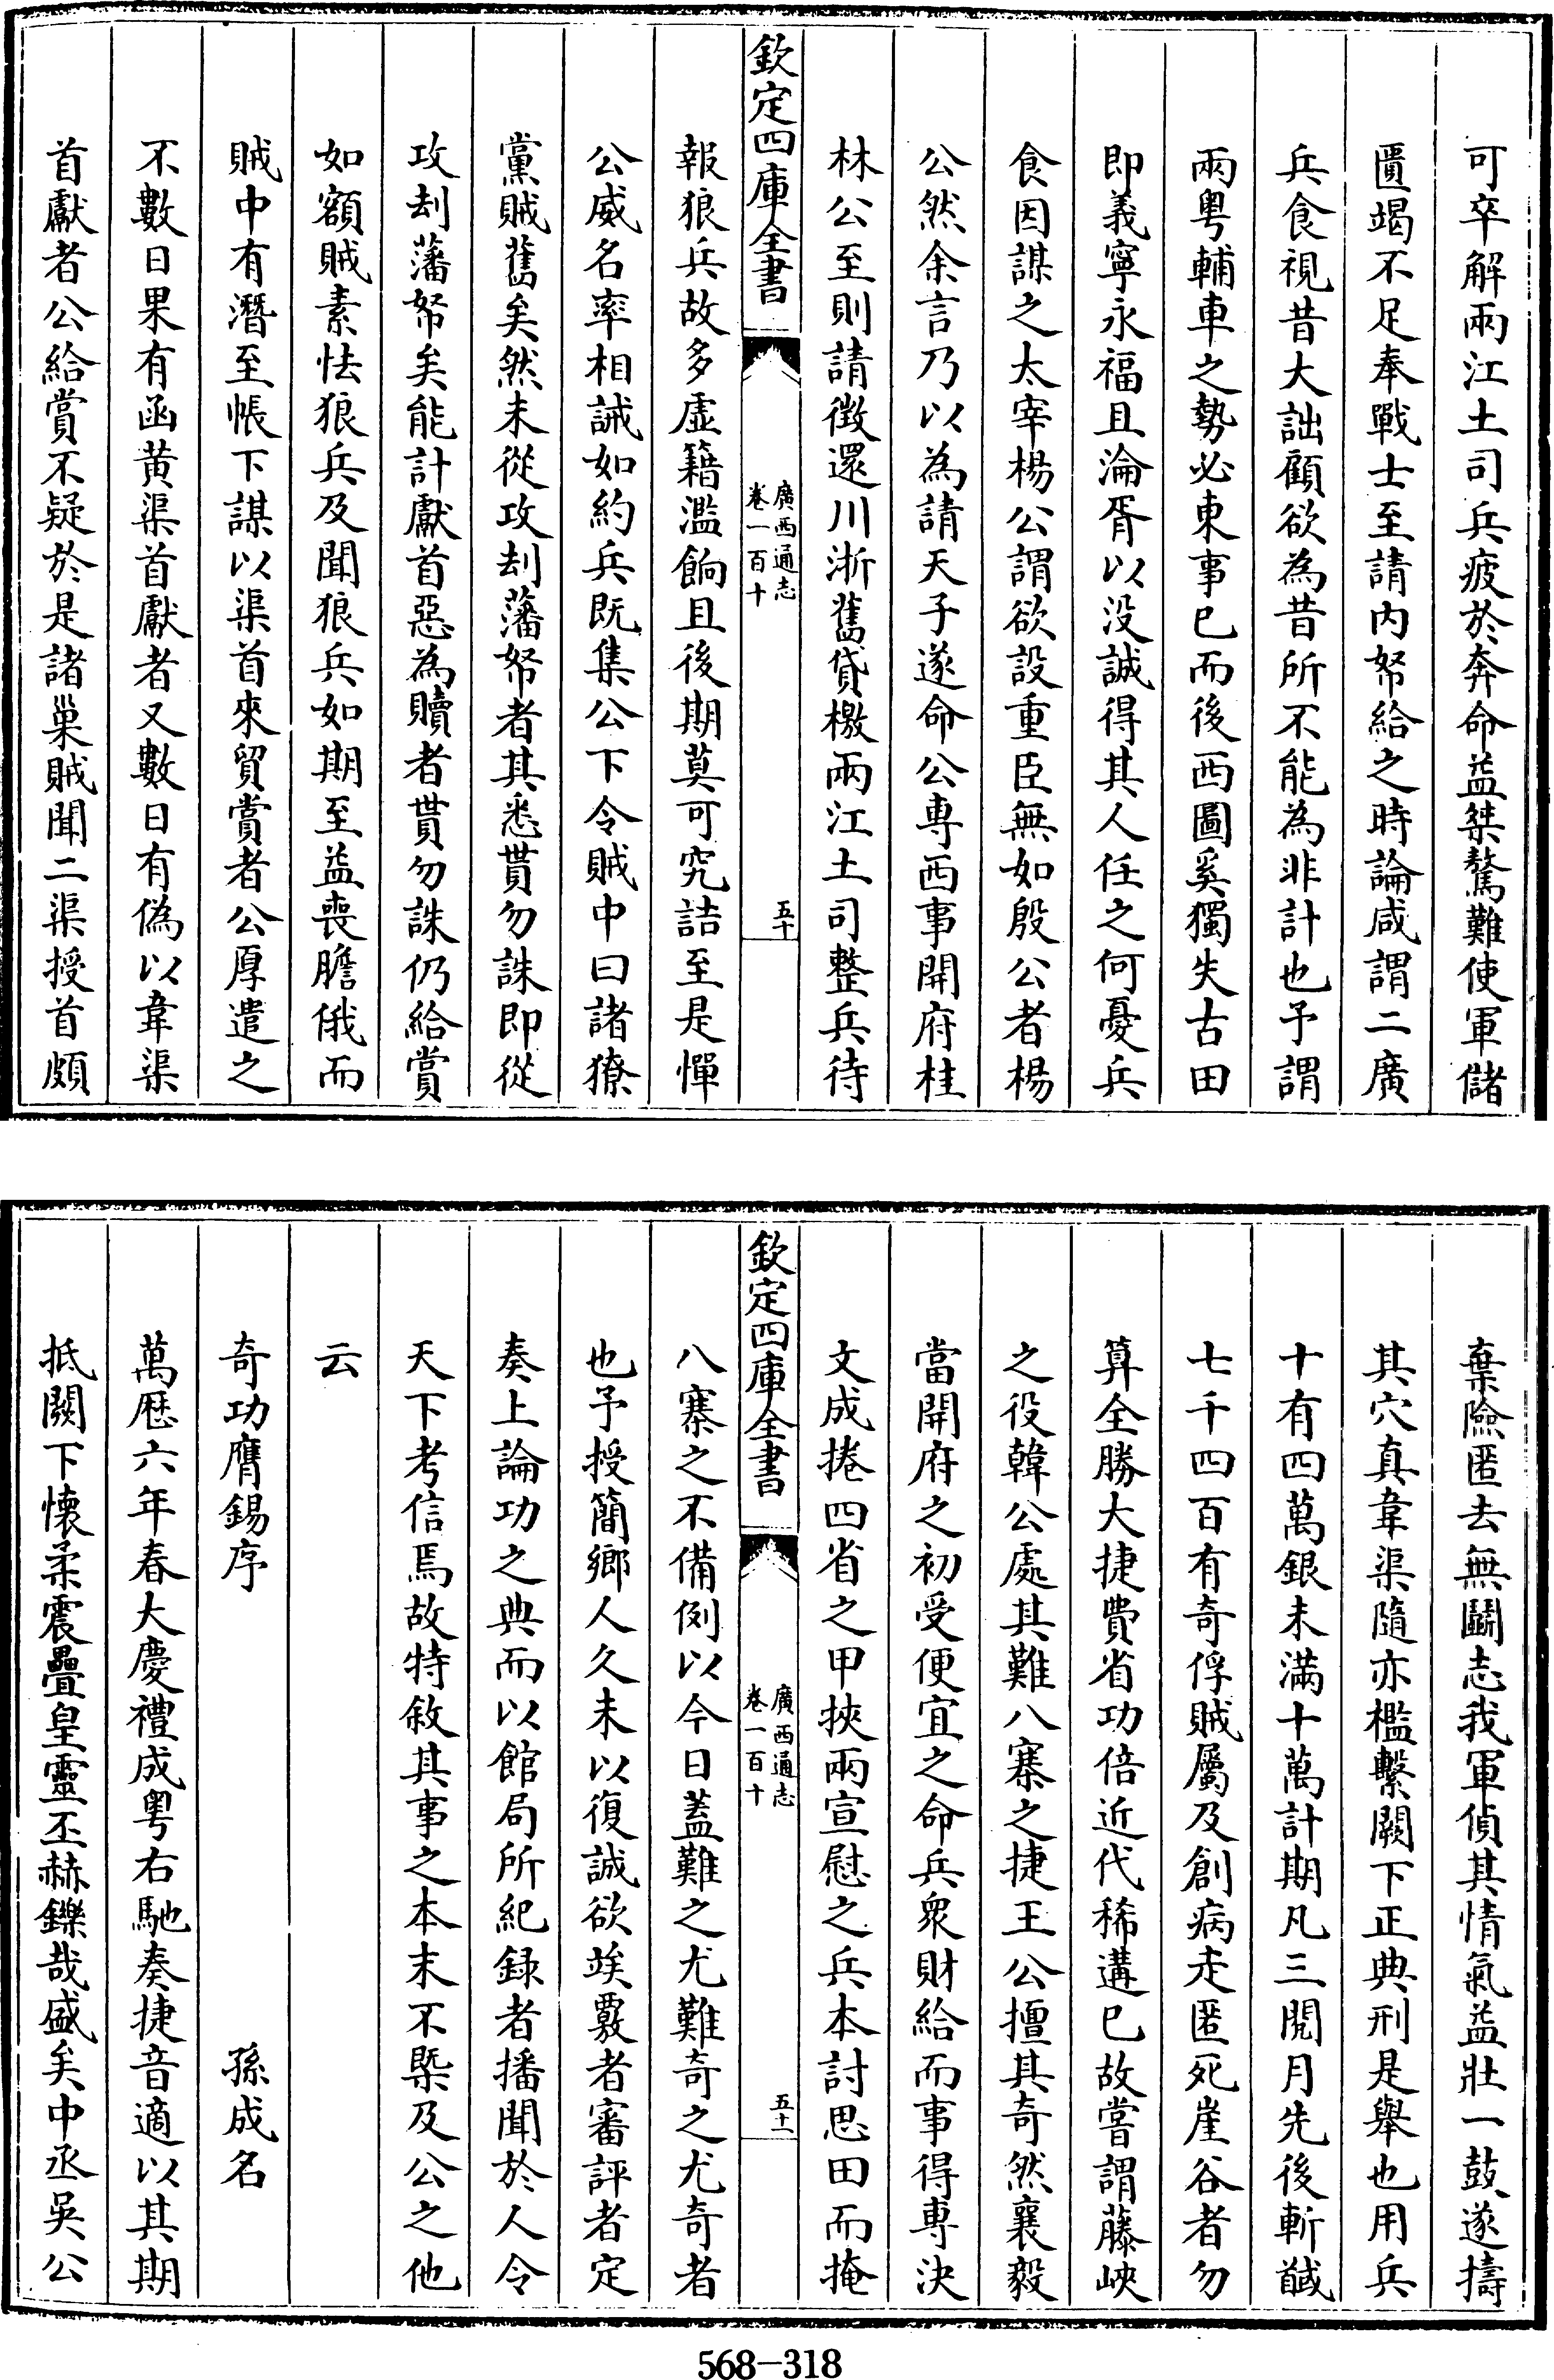 可卒解兩江土司兵疲於奔命益桀驁難使軍儲
匱竭不足奉戰士至請内帑給之時論咸謂二廣
兵食視昔大詘顧欲為昔所不能為非計也予謂
兩粤輔車之勢必東事已而後西圖奚獨失古田
即義寧永福且淪胥以没誠得其人任之何憂兵
食因謀之太宰楊公謂欲設重臣無如殷公者楊
公然余言乃以為請天子遂命公專西事開府桂
林公至則請徴還川浙舊貸檄兩江土司整兵待
欽定四庫全書
廣西通志
卷一百十
五十
報狼兵故多虚籍濫餉且後期莫可究詰至是憚
公威名率相誡如約兵既集公下令賊中曰諸獠
黨賊舊矣然未從攻刦藩帑者其悉貰勿誅即從
攻刦藩帑矣能計獻首惡為贖者貰勿誅仍給賞
如額賊素怯狼兵及聞狼兵如期至益喪膽俄而
賊中有潛至帳下謀以渠首來貿賞者公厚遣之
不數日果有函黄渠首獻者又數日有偽以韋渠
首獻者公給賞不疑於是諸巢賊聞二渠授首頗
棄險匿去無鬭志我軍偵其情氣益壯一鼓遂擣
其穴真韋渠隨亦檻繫闕下正典刑是舉也用兵
十有四萬銀未滿十萬計期凡三閱月先後斬馘
七千四百有奇俘賊屬及創病走匿死崖谷者勿
算全勝大捷費省功倍近代稀遘已故嘗謂藤峽
之役韓公處其難八寨之捷王公擅其奇然襄毅
當開府之初受便宜之命兵衆財給而事得專決
文成捲四省之甲挾兩宣慰之兵本討思田而掩
欽定四庫全書
廣西通志
卷一百十
五十一
八寨之不備例以今日蓋難之尤難奇之尤奇者
也予授簡鄉人久未以復誠欲竢覈者審評者定
奏上論功之典而以館局所紀録者播聞於人令
天下考信焉故特敘其事之本末不槩及公之他
云
奇功膺錫序　孫成名
萬厯六年春大慶禮成粤右馳奏捷音適以其期
抵闕下懷柔震疊皇靈丕赫鑠哉盛矣中丞吳公
568-318